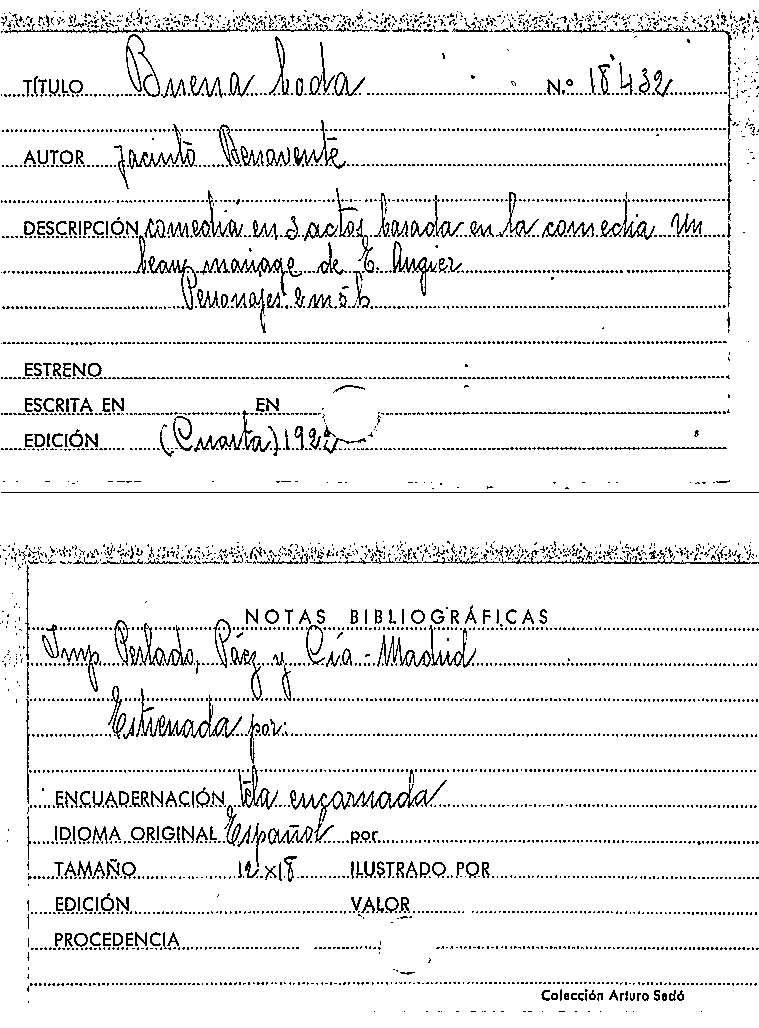 TÍTULO Buena boda N.º 18432
AUTOR Jacinto Benavente
DESCRIPCIÓN comedia en 3 actos basada en la comedia Un
beau mariage de E. Augier
Personajes 2 m 5 h
ESTRENO
ESCRITA EN EN
EDICIÓN (Cuarta) 1922
NOTAS BIBLIOGRÁFICAS
Imp Perlado, Páez y Cía - Madrid
Estrenada por:
ENCUADERNACIÓN tela encarnada
IDIOMA ORIGINAL Español por
TAMAÑO 12 x 18 ILUSTRADO POR
EDICIÓN VALOR
PROCEDENCIA
Colección Arturo Sedó